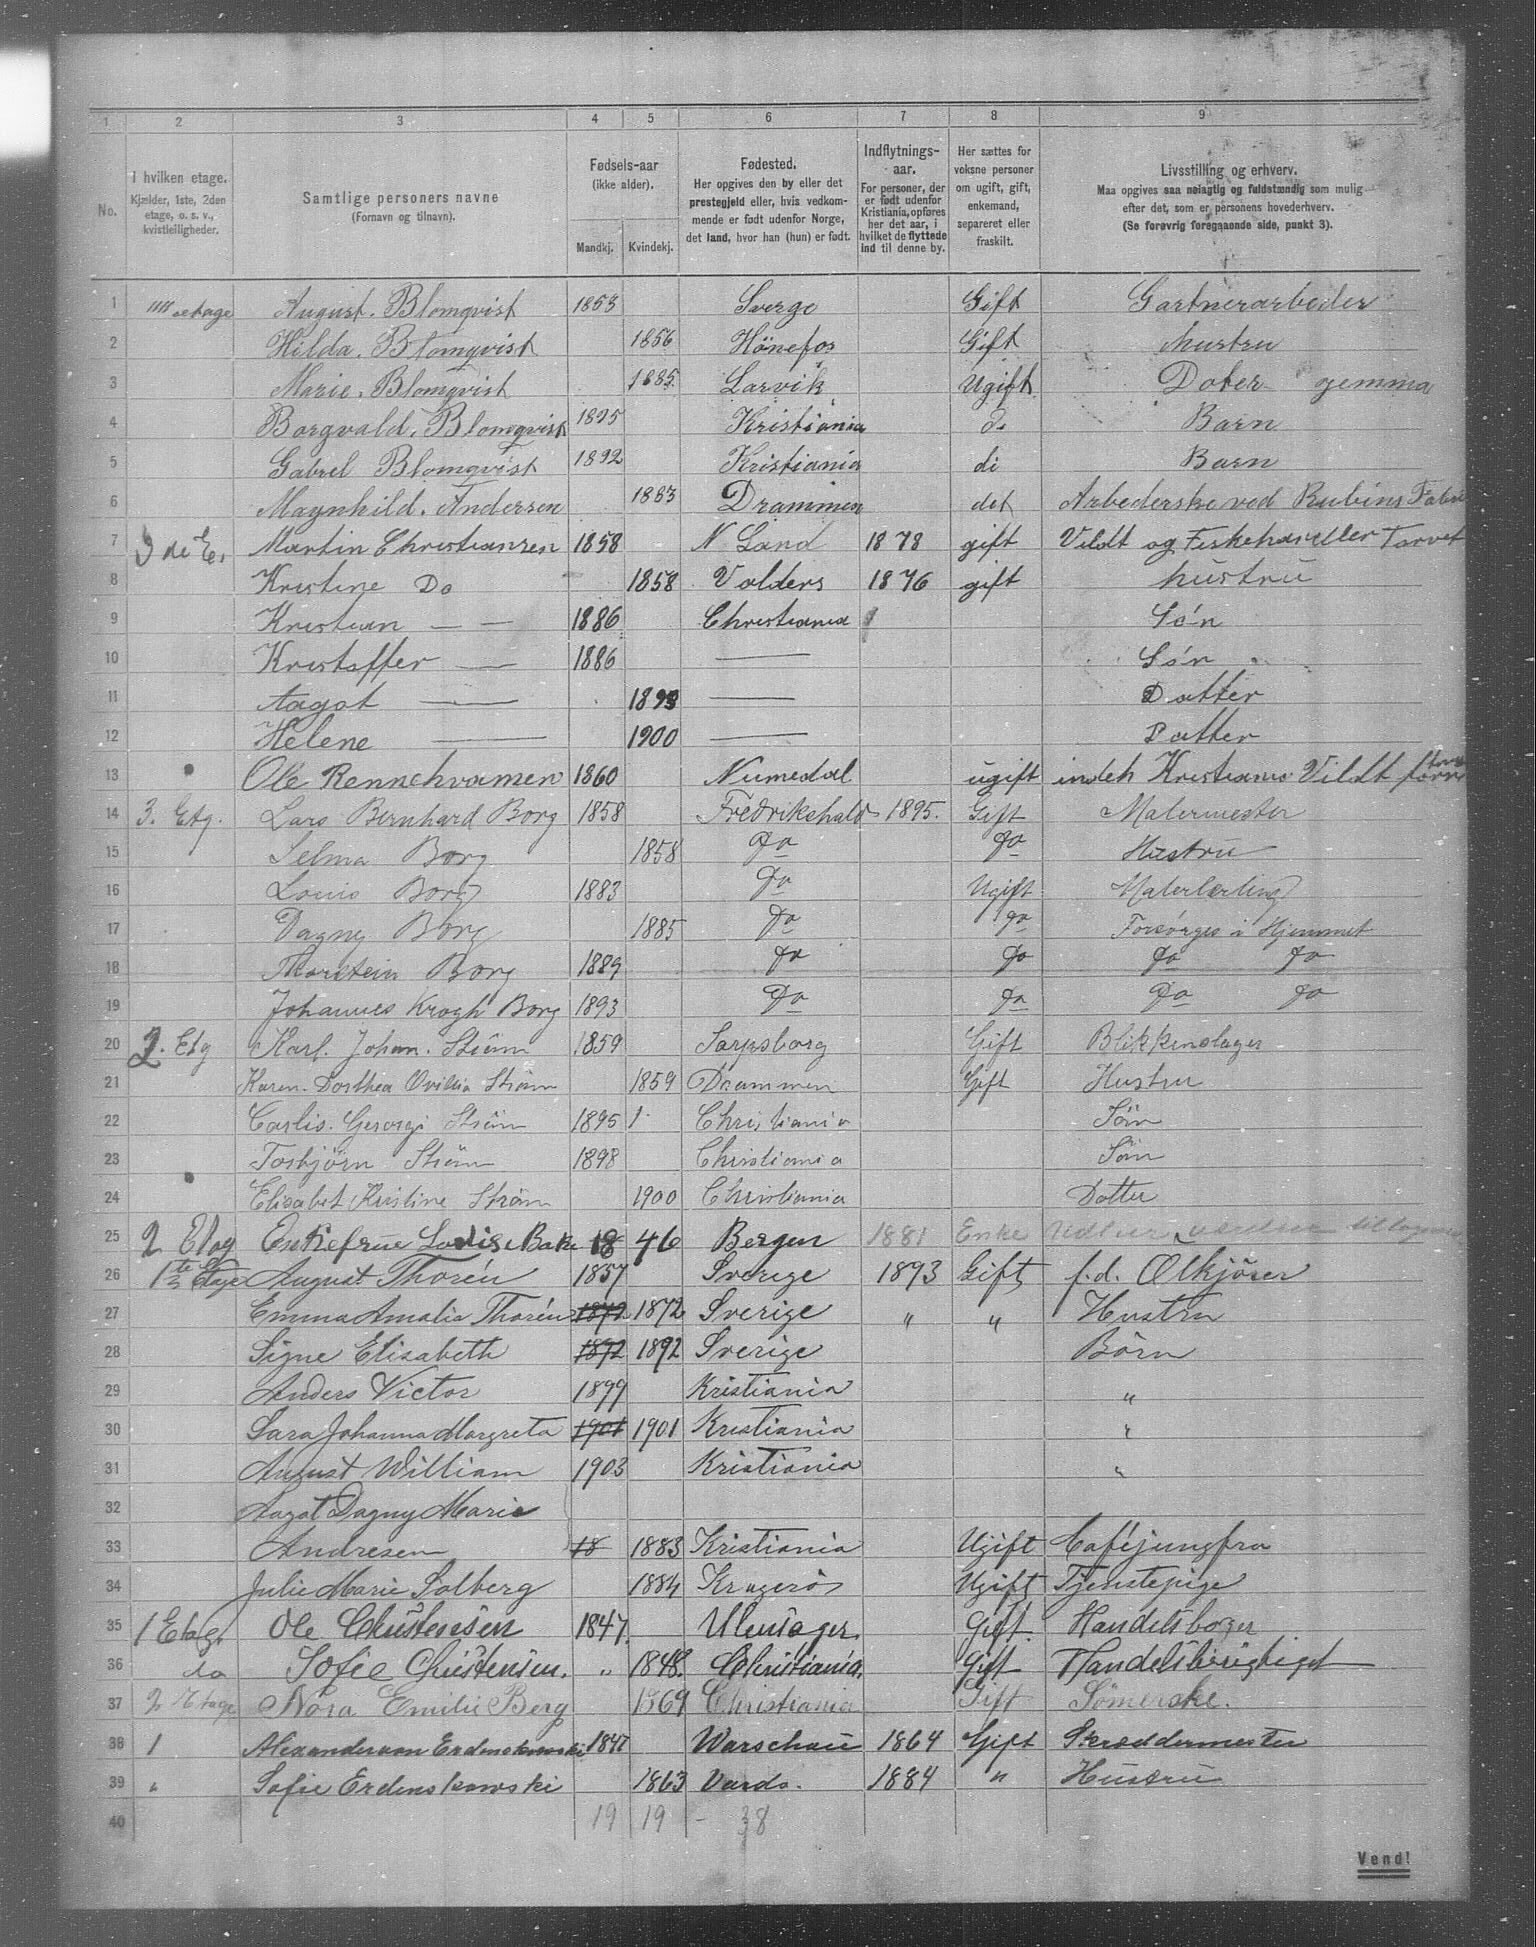 1 2 3 4 5 6 7 8 9
No. I hvilken etage. Kjælder, 1ste, 2den etage, o. s. v., kvistleiligheder. Samtlige personers navne (Fornavn og tilnavn). Fødsels-aar (ikke alder). Mandkj. Kvindekj. Fødested. Her opgives den by eller det prestegjeld eller, hvis vedkommende er født udenfor Norge, det land, hvor han (hun) er født. Indflytnings-aar. For personer, der er født udenfor Kristiania, opføres her det aar, i hvilket de flyttede ind til denne by. Her sættes for voksne personer om ugift, gift, enkemand, separeret eller fraskilt. Livsstilling og erhverv. Maa opgives saa nøiagtig og fuldstændig som mulig efter det, som er personens hovederhverv. (Se forøvrig foregaaende side, punkt 3).
1 IIII etage August. Blomqvist 1853 Sverge Gift Gartnerarbeder
2 Hilda. Blomqvist 1856 Hönefos Gift hustru
3 Marie. Blomqvist 1885. Larvik Ugift Doter jemma
4 Borgvald. Blomqvist 1895 Kristiania do Barn
5 Gabrel Blomqvist 1892 Kristiania di Barn
6 Maynhild. Andersen 1883 Drammen det Arbederske ved Rubins Fabri
7 3 de E. Martin Christiansen 1858 N Land 1878 gift Vildt og Fiskehandller Torvet
8 Kristine Do 1858 Valders 1876 gift hustru
9 Kristian — — 1886 Christiania Sön
10 Kristoffer — 1886 — Sön
11 Aagot — 1893 — Datter
12 Helene — 1900 — Datter
13 Ole Rennehvamen 1860 Numedal ugift indeh Kristians Vildt
14 3. Etg. Lars Bernhard Borg 1858 Fredrikshald 1895. Gift Malermester
15 Selma Borg 1858 Do Do Hustru
16 Louis Borg 1883 Do Ugift Malerlærling
17 Dagny Borg 1885 Do Do Forsörges i Hjemmet
18 Thorstein Borg 1889 Do Do Do Do
19 Johannes Krogh Borg 1893 Do Do Do Do
20 2. Etg Karl. Johan. Ström 1859 Sarpsborg Gift Blikkenslager
21 Karen. Dorthea Ovilia Ström 1859 Drammen Gift Hustru
22 Carlis. Georgi Ström 1895 1. Christiania Sön
23 Torbjörn Ström 1898 Christiania Sön
24 Elisabet Kristine Ström 1900 Christiania Dotter
25 2 Etag Enkefrue Lovise Bake 18 46 Bergen 1881 Enke
26 1ste Etage August Thorén 1857 Sverige 1893 Gift f.d. Ölkjörer
27 Emma Amalia Thorén 1872 1872 Sverige " " Hustru
28 Signe Elisabeth 1892 1892 Sverige Börn
29 Anders Victor 1899 Kristiania "
30 Sara Johanna Margreta 1901 1901 Kristiania "
31 August William 1903 Kristiania "
32 Aagot Dagny Marie
33 Andresen 18 1883 Kristiania Ugift Caféjungfru
34 Julie Marie Solberg 1884 Kragerö Ugift Tjenstepige
35 1 Etag. Ole Christensen 1847. Ulensager. Gift Handelsborger
36 do Sofie Christensen. " 1848. Christiania. Gift Handelsberigtiget
37 2 Etage Nora Emilie Berg 1869 Christiania Gift Sömerske.
38 1 Alexander von Erdenskowski 1847 Warschau 1864 Gift Skræddermester
39 " Sofie Erdenskowski 1863 Vardo. 1884 " Hustru
40 19 19 - 38
Vend!